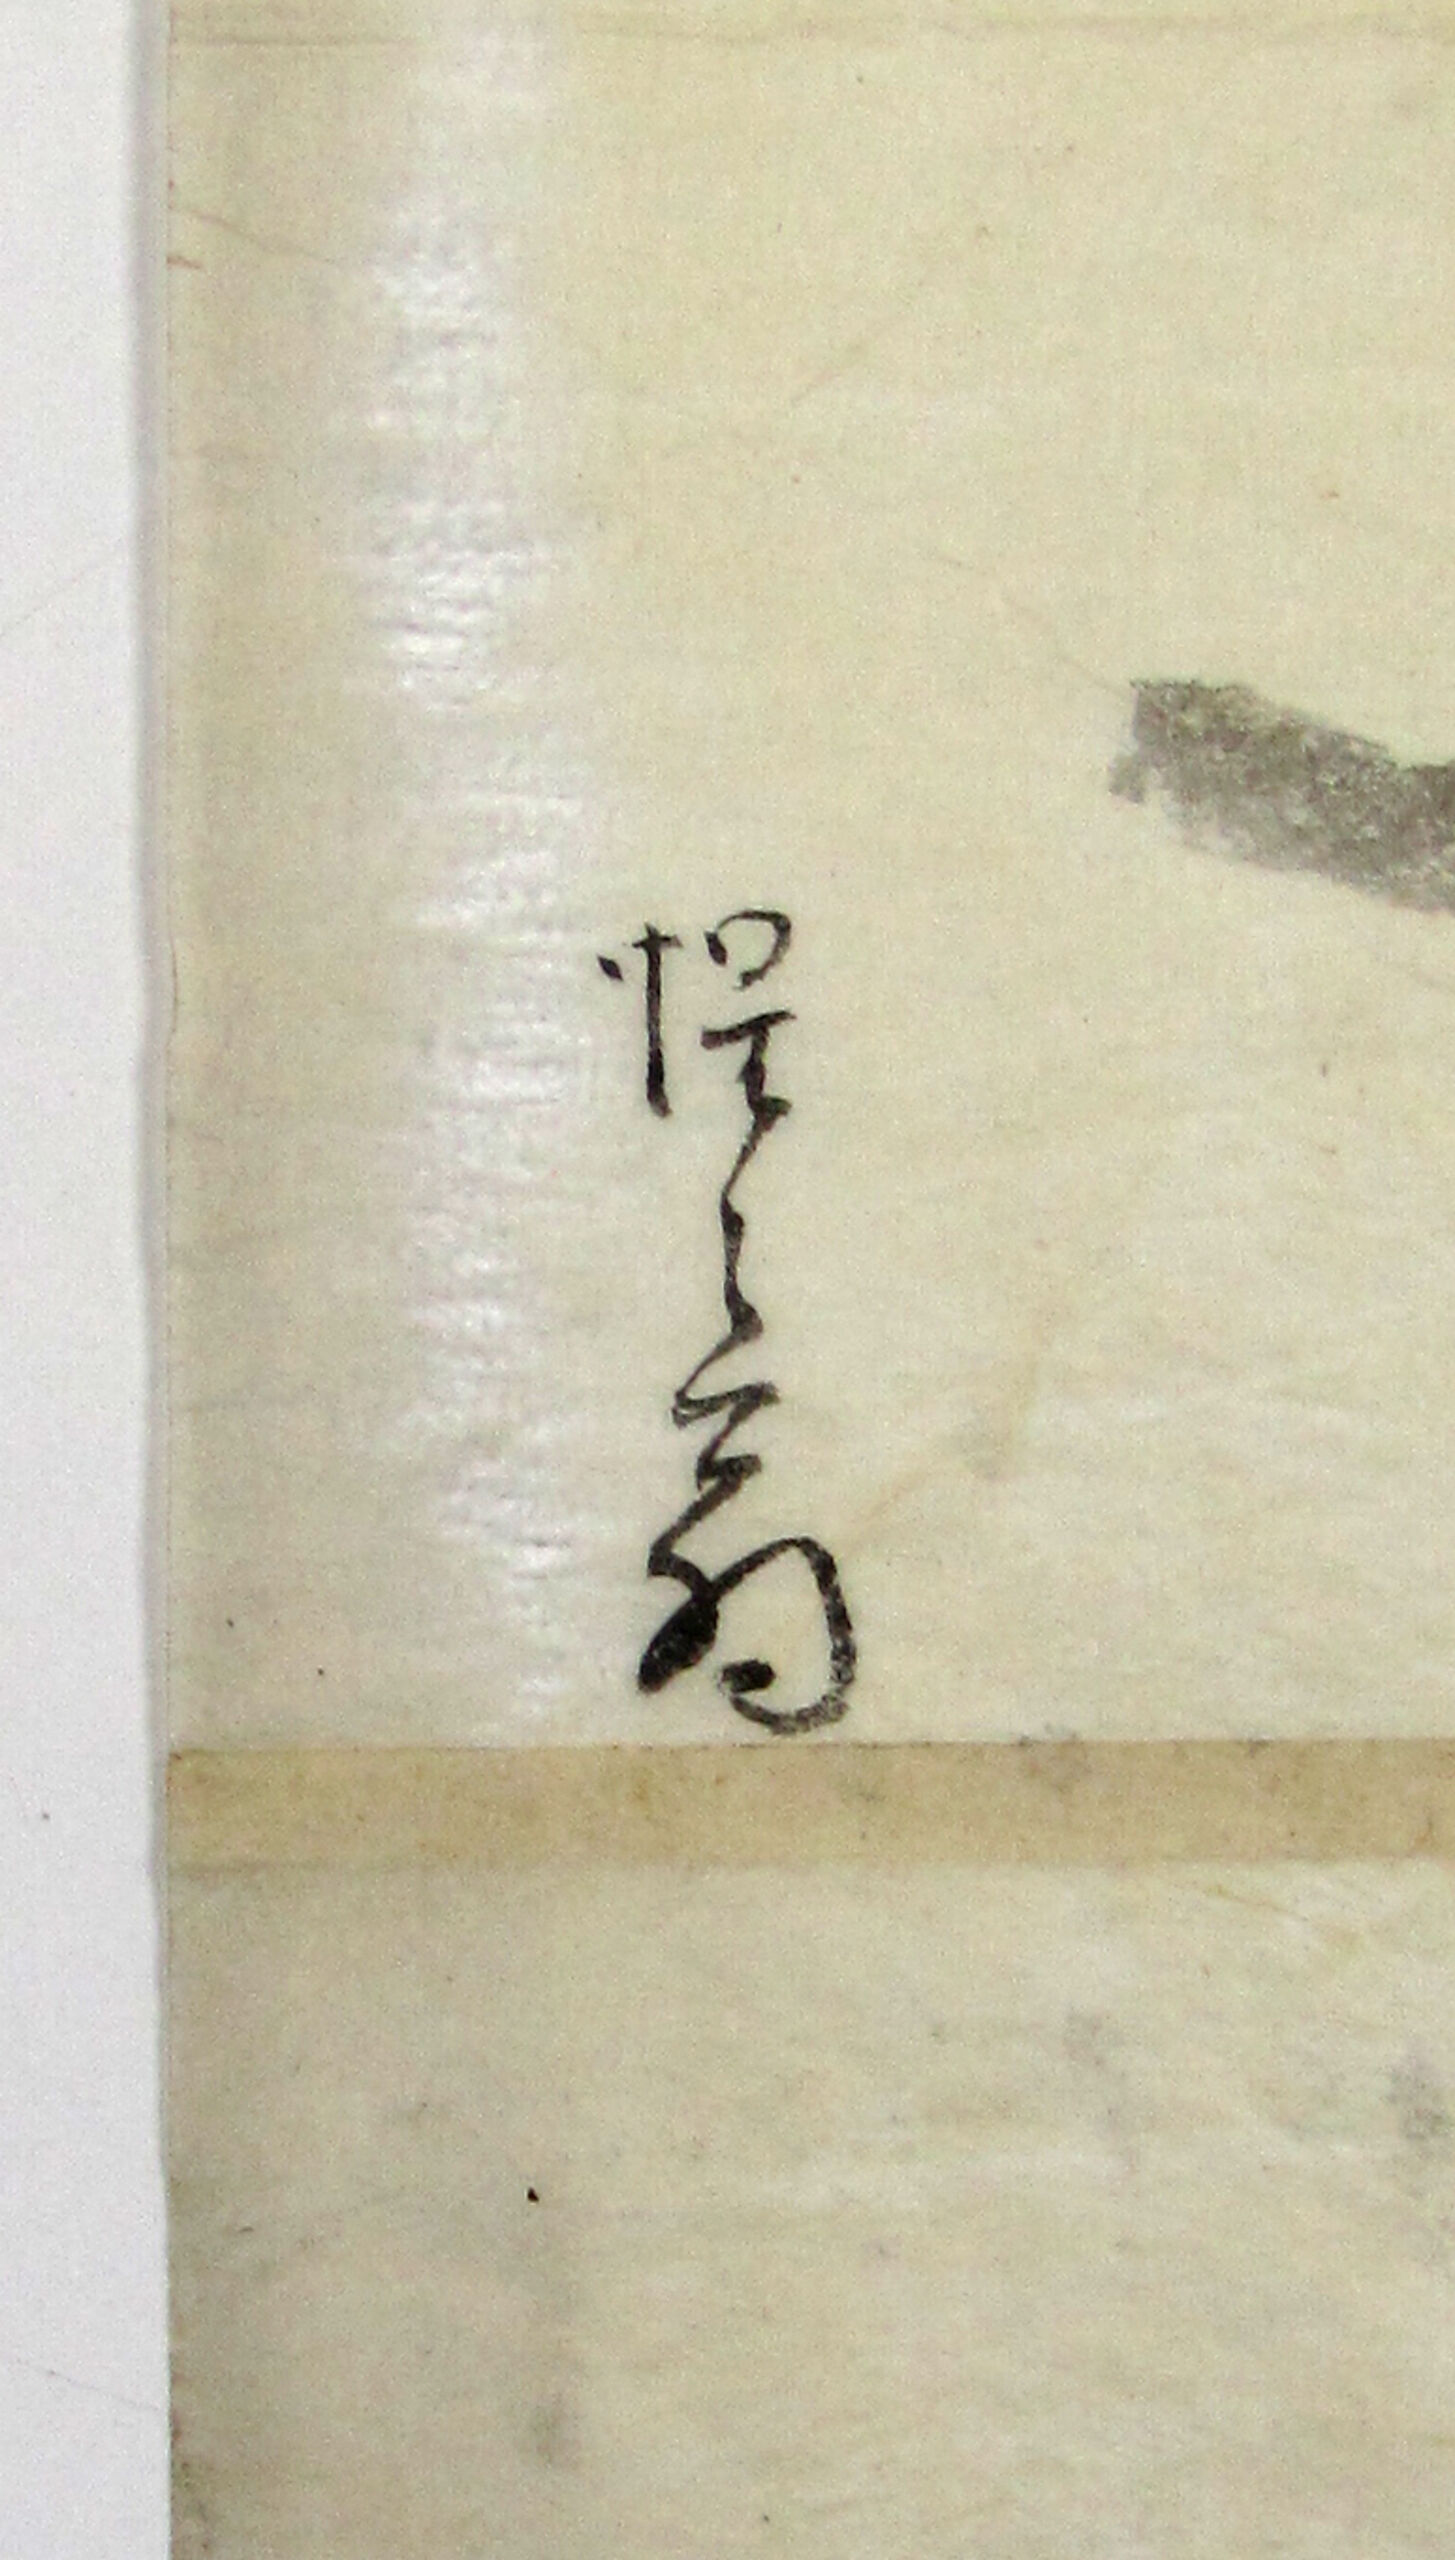 惺々翁